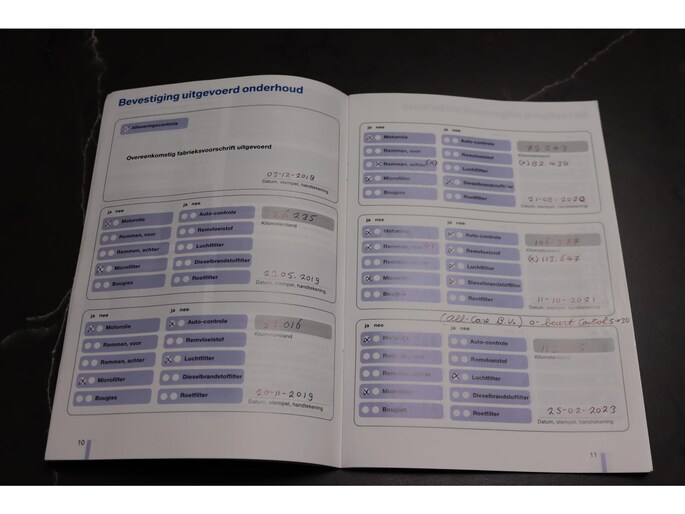 Bevestiging uitgevoerd onderhoud
Afleveringscontrole
Overeenkomstig fabrieksvoorschrift uitgevoerd
03-12-2018
Datum, stempel, handtekening
ja nee
ja nee
Motorolie
Auto-controle
235
Remmen, voor
Remvloeistof
Kilometerstand
Remmen, achter
Luchtfilter
Microfilter
Dieselbrandstoffilter
23.05.2019
Bougies
Roetfilter
Datum, stempel, handtekening
ja nee
ja nee
Motorolie
Auto-controle
016
Remmen, voor
Remvloeistof
Kilometerstand
Remmen, achter
Luchtfilter
Microfilter
Dieselbrandstoffilter
20-11-2019
Bougies
Roetfilter
Datum, stempel, handtekening
10
ja nee
ja nee
Motorolie
Auto-controle
Remmen, voor
Remvloeistof
Kilometerstand
Remmen, achter (x)
Luchtfilter
(x) 82.430
Microfilter
Dieselbrandstoffilter
Bougies
Roetfilter
21-09-2020
Datum, stempel, handtekening
ja nee
ja nee
Motorolie
Auto-controle
Remmen, voor
Remvloeistof
Kilometerstand
Remmen, achter
Luchtfilter
(x) 113.647
Microfilter
Dieselbrandstoffilter
Bougies
Roetfilter
11-10-2021
Datum, stempel, handtekening
(All-Care B.V.) o-beurt
ja nee
ja nee
Auto-controle
Remvloeistof
Kilometerstand
Luchtfilter
Microfilter
Dieselbrandstoffilter
Bougies
Roetfilter
25-02-2023
Datum, stempel, handtekening
11